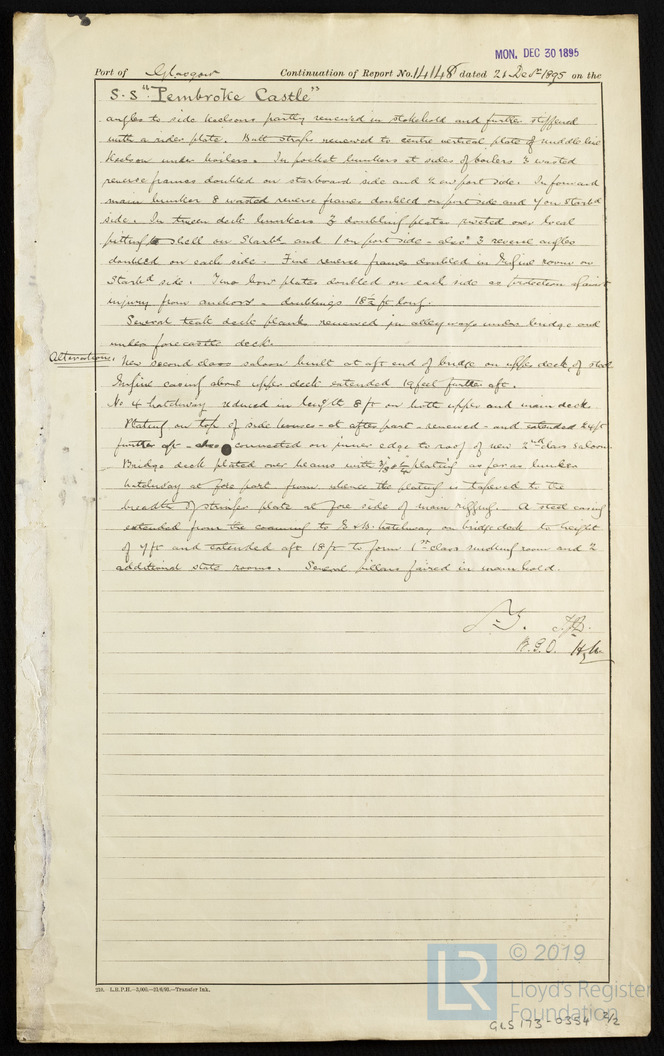 MON. DEC 30 1895
Port of Glasgow Continuation of Report No. 14148 dated 21 Decr 1895 on the
S.S "Pembroke Castle"
angles to side keelsons partly renewed in stokehold and further stiffened
with a rider plate. Butt straps renewed to centre vertical plate of middle line
keelson under boilers. In pocket bunkers at sides of boilers 3 wasted
reverse frames doubled on starboard side and 2 on port side. In forward
main bunker 8 wasted reverse frames doubled on port side and 7 on Starbd
side. In tween deck bunkers 3 doubling plates riveted over local
pitting shell on Starbd and 1 on port side - also 3 reverse angles
doubled on each side. Five reverse frames doubled in Engine room on
Starbd side. Two bow plates doubled on each side as protection against
injury from anchors - doublings 18½ ft long.
Several teak deck planks renewed in alleyways under bridge and
under forecastle deck.
Alterations. New second class saloon built at aft end of bridge on upper deck, of steel
Engine casing above upper deck extended 19 feet further aft.
No 4 hatchway reduced in length 8 ft on both upper and main deck
Plating on top of side houses - at after part - renewed - and extended 24 ft
further aft - connected on inner edge to roof of new 2nd class saloon
Bridge deck plated over beams with plating as far as bunker
hatchway at fore part from whence the plating is tapered to the
breadth of stringer plate at fore side of main rigging. A steel casing
extended from the coaming to E & B. hatchway on bridge deck to height
of 7 ft and extended aft 18 ft to form 1st class smoking room and 2
additional state rooms. Several pillars faired in main hold.
W.G.O.
210. L.R.P.H.—3,000.—21/6/95.—Transfer Ink.
LR © 2019
Lloyd's Register
Foundation
GLS 173-0354 2/2